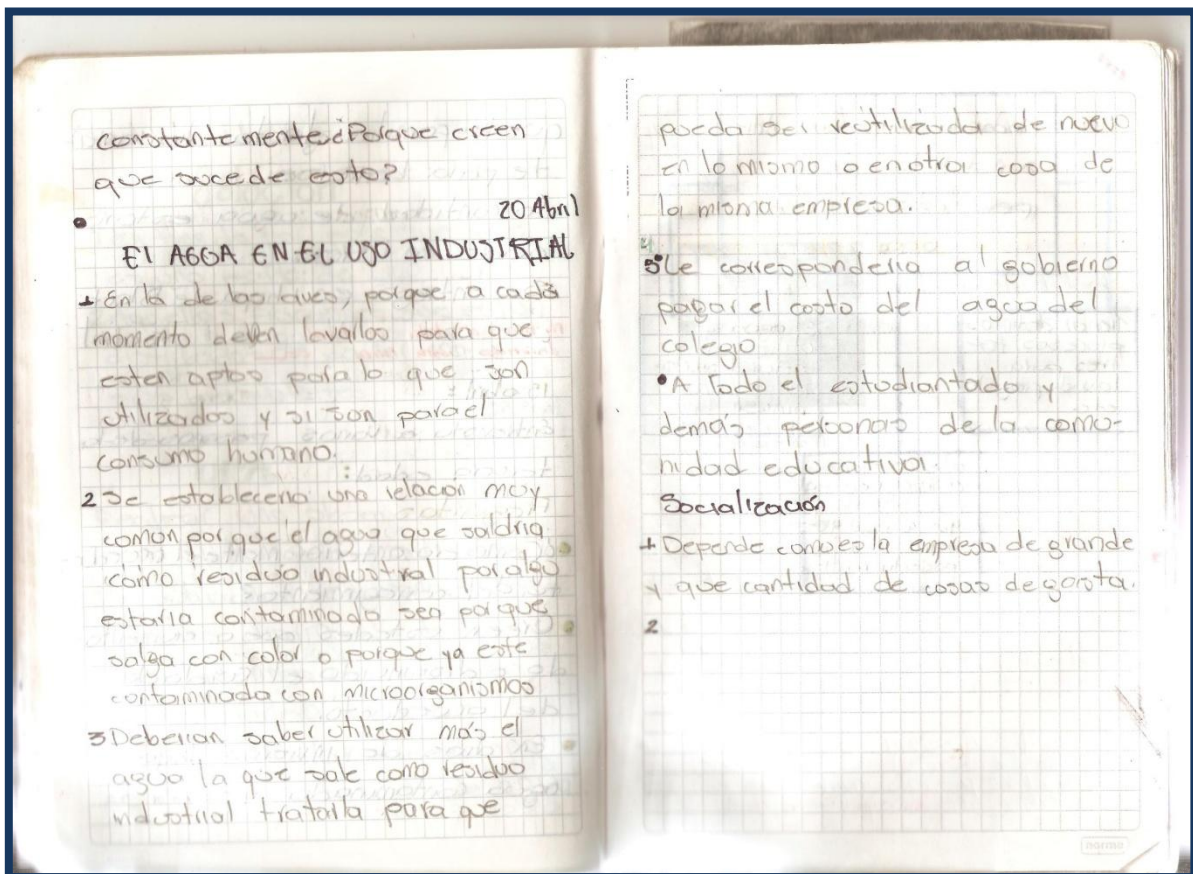 constantemente ¿Porque creen
que sucede esto?
20 Abril
El AGUA EN EL USO INDUSTRIAL
1 En la de las aves, porque a cada
momento deven lavarlos para que
esten aptos para lo que son
utilizados y si son para el
consumo humano.
2 Se estableceria una relación muy
comon porque el agua que saldria
como residuo industrial por algo
estaria contaminada sea porque
salga con color o porque ya este
contaminada con microorganismos
3 Deberian saber utilizar más el
agua la que sale como residuo
industrial tratarla para que
pueda ser reutilizada de nuevo
en lo mismo o en otra cosa de
la misma empresa.
4
5 Le corresponderia al gobierno
pagar el costo del agua del
colegio
• A Todo el estudiantado y
demás personas de la comu-
nidad educativa.
Socialización
1 Depende como es la empresa de grande
y que cantidad de cosas degasta.
2
norma